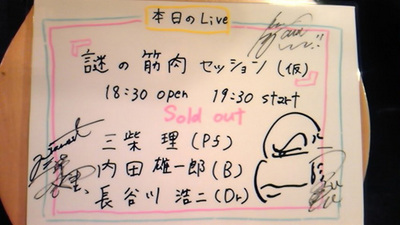 本日のLive
謎の筋肉セッション(仮)
18:30 open 19:30 start
Sold out
三柴 理(Pf)
内田 雄一郎(B)
長谷川 浩二(Dr)